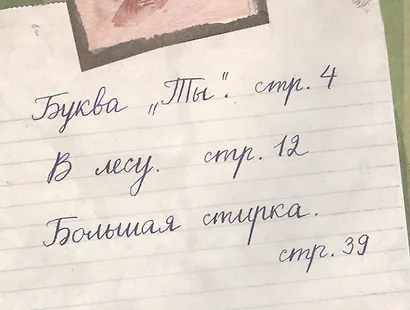 Буква „Ты". стр. 4
В лесу. стр. 12
Большая стирка.
стр. 39